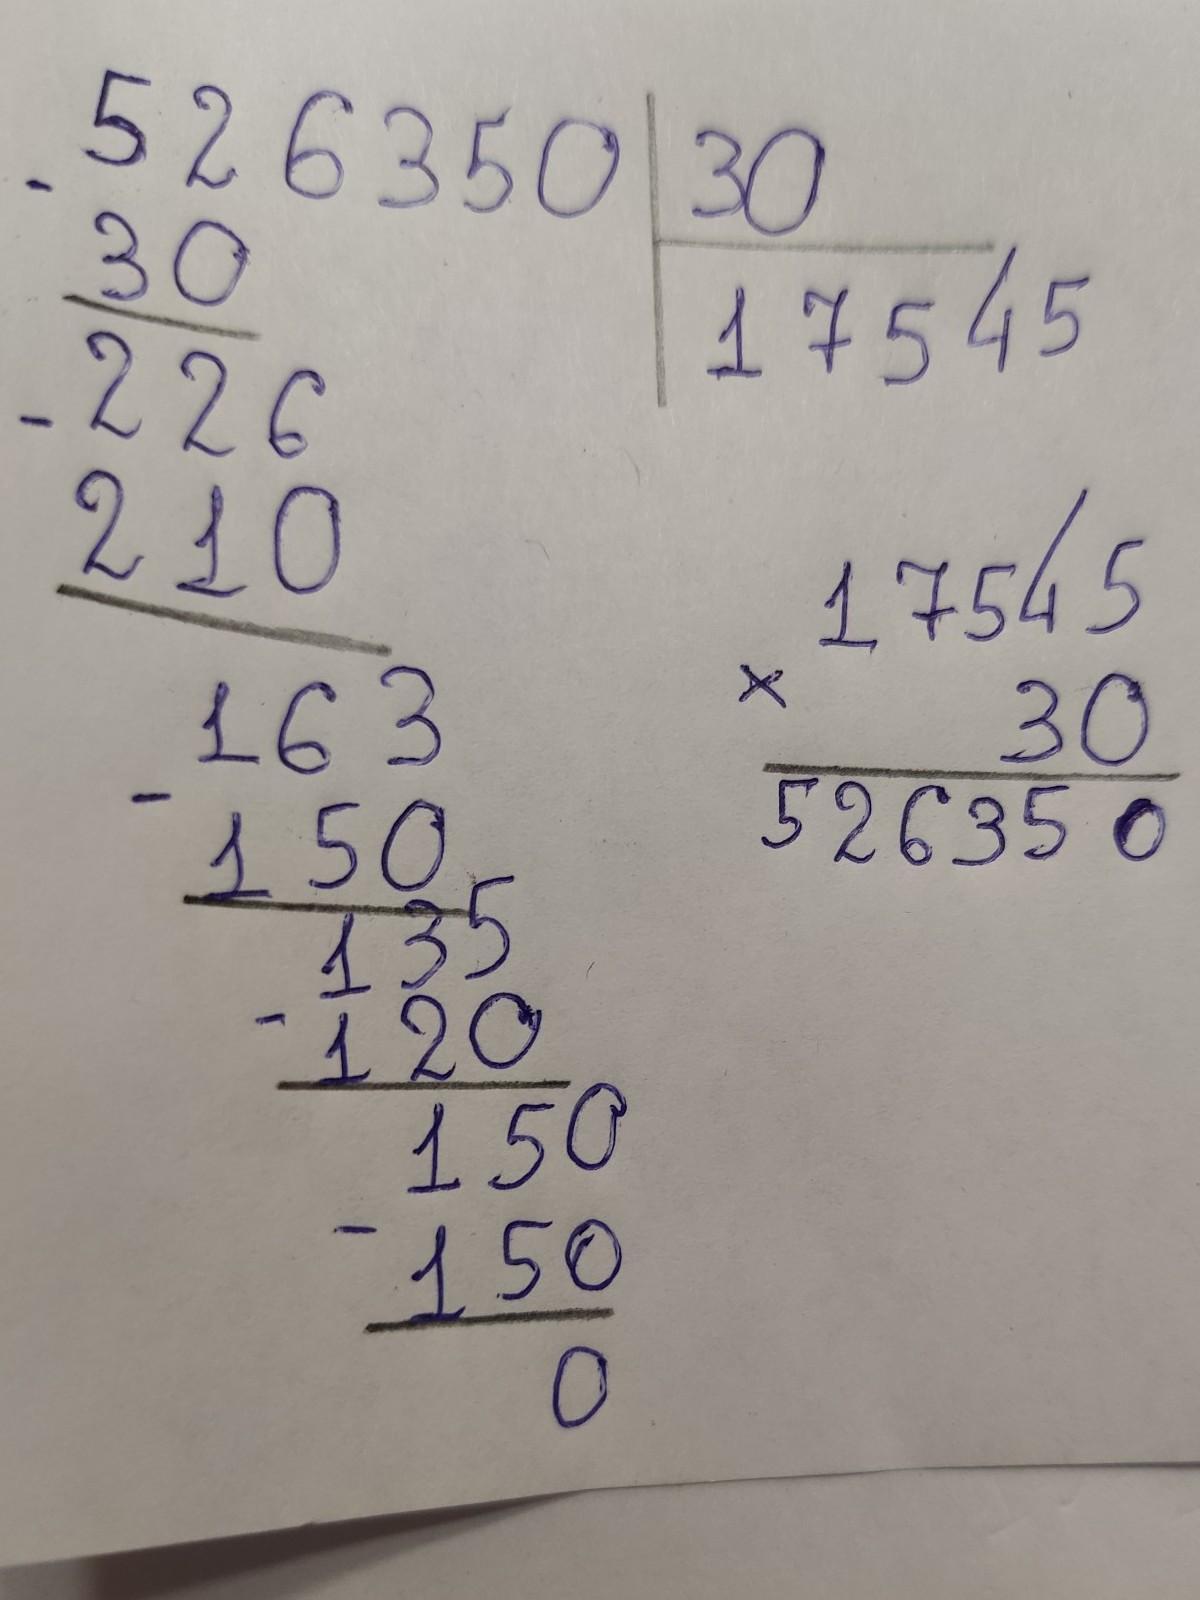 - 526350 | 30
30
17545
- 226
210
163
- 150
135
- 120
150
- 150
0
17545
× 30
526350